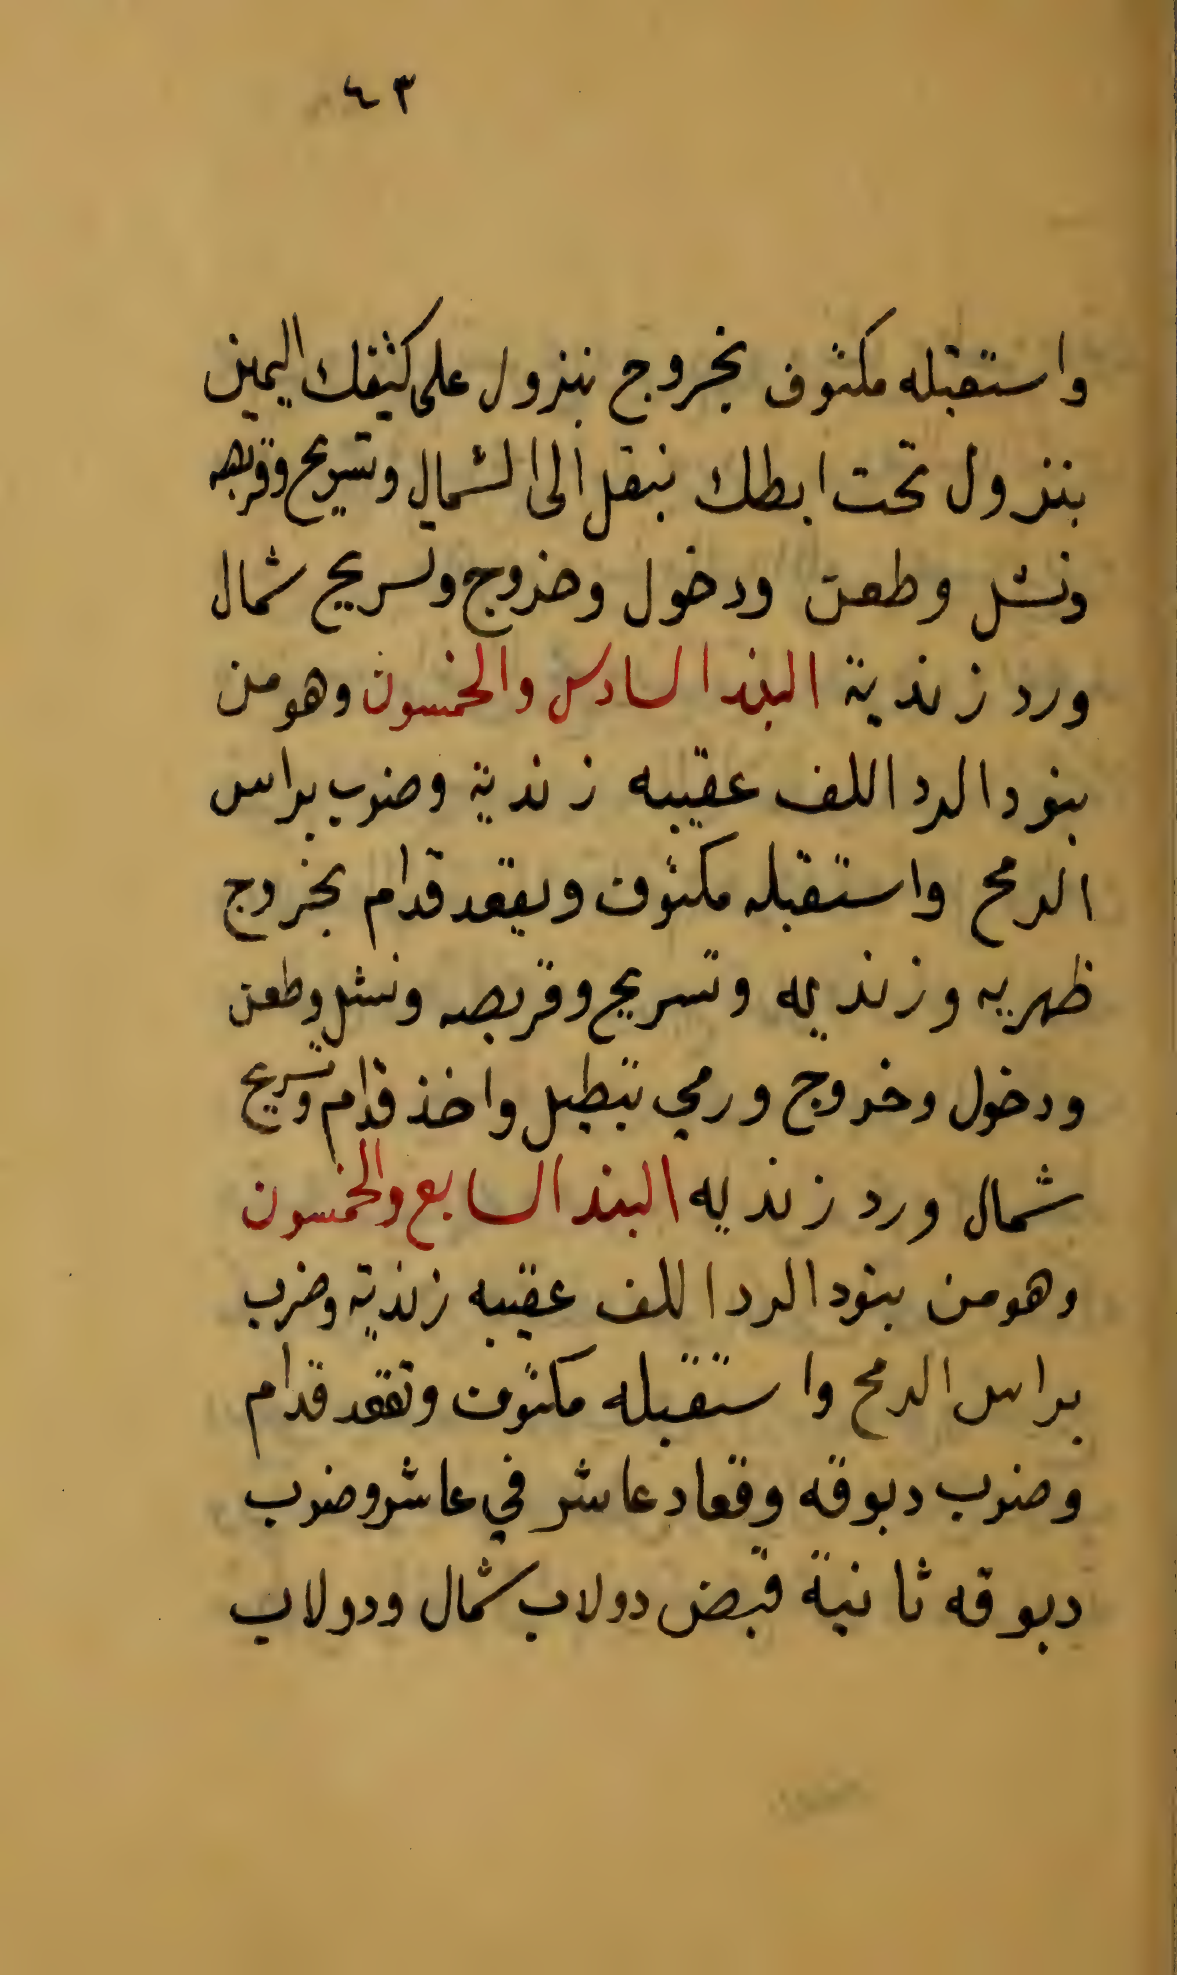 ٤٣
واستقبله مكثوف بخروج بنزول على كثفك اليمين
بنزول تحت ابطك بنقل الى الشمال وتسريح وقربصه
ونشل وطعن ودخول وخروج وتسريح شمال
ورد زندية البند السادس والخمسون وهو من
بنود الرد اللف عقيبه زندية وضرب براس
الرمح واستقبله مكثوف ويقعد قدام بخروج
ظهريه وزنديه وتسريح وقربصه ونشل وطعن
ودخول وخروج ورمي بتبطيل واخذ قدام وتسريح
شمال ورد زنديه البند السابع والخمسون
وهو من بنود الرد اللف عقيبه زندية وضرب
براس الرمح واستقبله مكثوف وتقعد قدام
وضرب دبوقه وقعاد عاشر في عاشر وضرب
دبوقه ثانية قبض دولاب شمال ودولاب